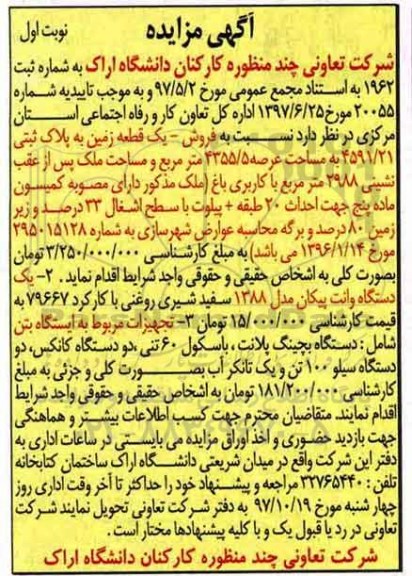 آگهی مزایده
نوبت اول
شرکت تعاونی چند منظوره کارکنان دانشگاه اراک به شماره ثبت
۱۹۶۲ به استناد مجمع عمومی مورخ ۹۷/۵/۲ و به موجب تاییدیه شماره
۲۰۰۵۵ مورخ ۱۳۹۷/۶/۲۵ اداره کل تعاون کار و رفاه اجتماعی استان
مرکزی در نظر دارد نسبت به فروش – یک قطعه زمین به پلاک ثبتی
۴۵۹۱/۲۱ به مساحت عرصه ۴۳۵۵/۵ متر مربع و مساحت ملک پس از عقب
نشینی ۲۹۸۸ متر مربع با کاربری باغ (ملک مذکور دارای مصوبه کمیسون
ماده پنج جهت احداث ۲۰ طبقه + پیلوت با سطح اشغال ۳۳ درصد و زیر
زمین ۸۰ درصد و برگه محاسبه عوارض شهرسازی به شماره ۲۹۵۰۱۵۱۲۸
مورخ ۱۳۹۶/۱/۱۴ می باشد) به مبلغ کارشناسی ۳/۲۵۰/۰۰۰/۰۰۰ تومان
بصورت کلی به اشخاص حقیقی و حقوقی واجد شرایط اقدام نماید . ۲- یک
دستگاه وانت پیکان مدل ۱۳۸۸ سفید شیری روغنی با کارکرد ۷۹۶۶۷ به
قیمت کارشناسی ۱۵/۰۰۰/۰۰۰ تومان ۳- تجهیزات مربوط به ایستگاه بتن
شامل : دستگاه بچینگ پلانت ، باسکول ۶۰ تنی ،دو دستگاه کانکس، دو
دستگاه سیلو ۱۰۰ تن و یک تانکر آب بصورت کلی و جزئی به مبلغ
کارشناسی ۱۸۱/۲۰۰/۰۰۰ تومان به اشخاص حقیقی و حقوقی واجد شرایط
اقدام نمایند. متقاضیان محترم جهت کسب اطلاعات بیشتر و هماهنگی
جهت بازدید حضوری و اخذ اوراق مزایده می بایستی در ساعات اداری به
دفتر این شرکت واقع در میدان شریعتی دانشگاه اراک ساختمان کتابخانه
تلفن : ۳۲۷۶۵۴۴۰ مراجعه و پیشنهاد خود را حداکثر تا آخر وقت اداری روز
چهار شنبه مورخ ۹۷/۱۰/۱۹ به دفتر شرکت تعاونی تحویل نمایند شرکت
تعاونی در رد یا قبول یک و یا کلیه پیشنهادها مختار است .
شرکت تعاونی چند منظوره کارکنان دانشگاه اراک